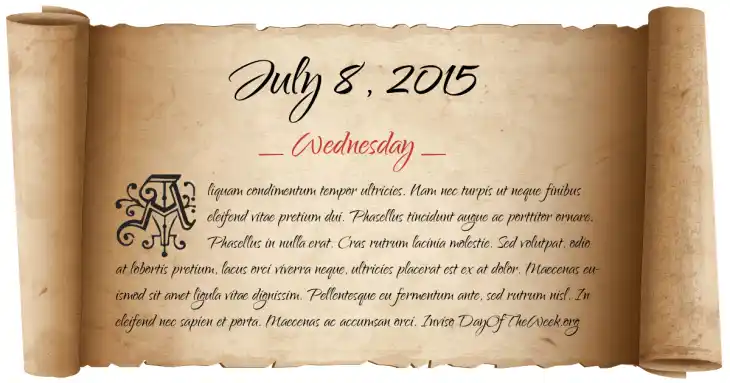 July 8, 2015
_ Wednesday _
Aliquam condimentum tempor ultricies. Nam nec turpis ut neque finibus
eleifend vitae pretium dui. Phasellus tincidunt augue ac porttitor ornare.
Phasellus in nulla erat. Cras rutrum lacinia molestie. Sed volutpat, odio
at lobortis pretium, lacus orci viverra neque, ultricies placerat est ex at dolor. Maecenas eu-
ismod sit amet ligula vitae dignissim. Pellentesque eu fermentum ante, sed rutrum nisl. In
eleifend nec sapien et porta. Maecenas ac accumsan orci. Inviso DayOfTheWeek.org